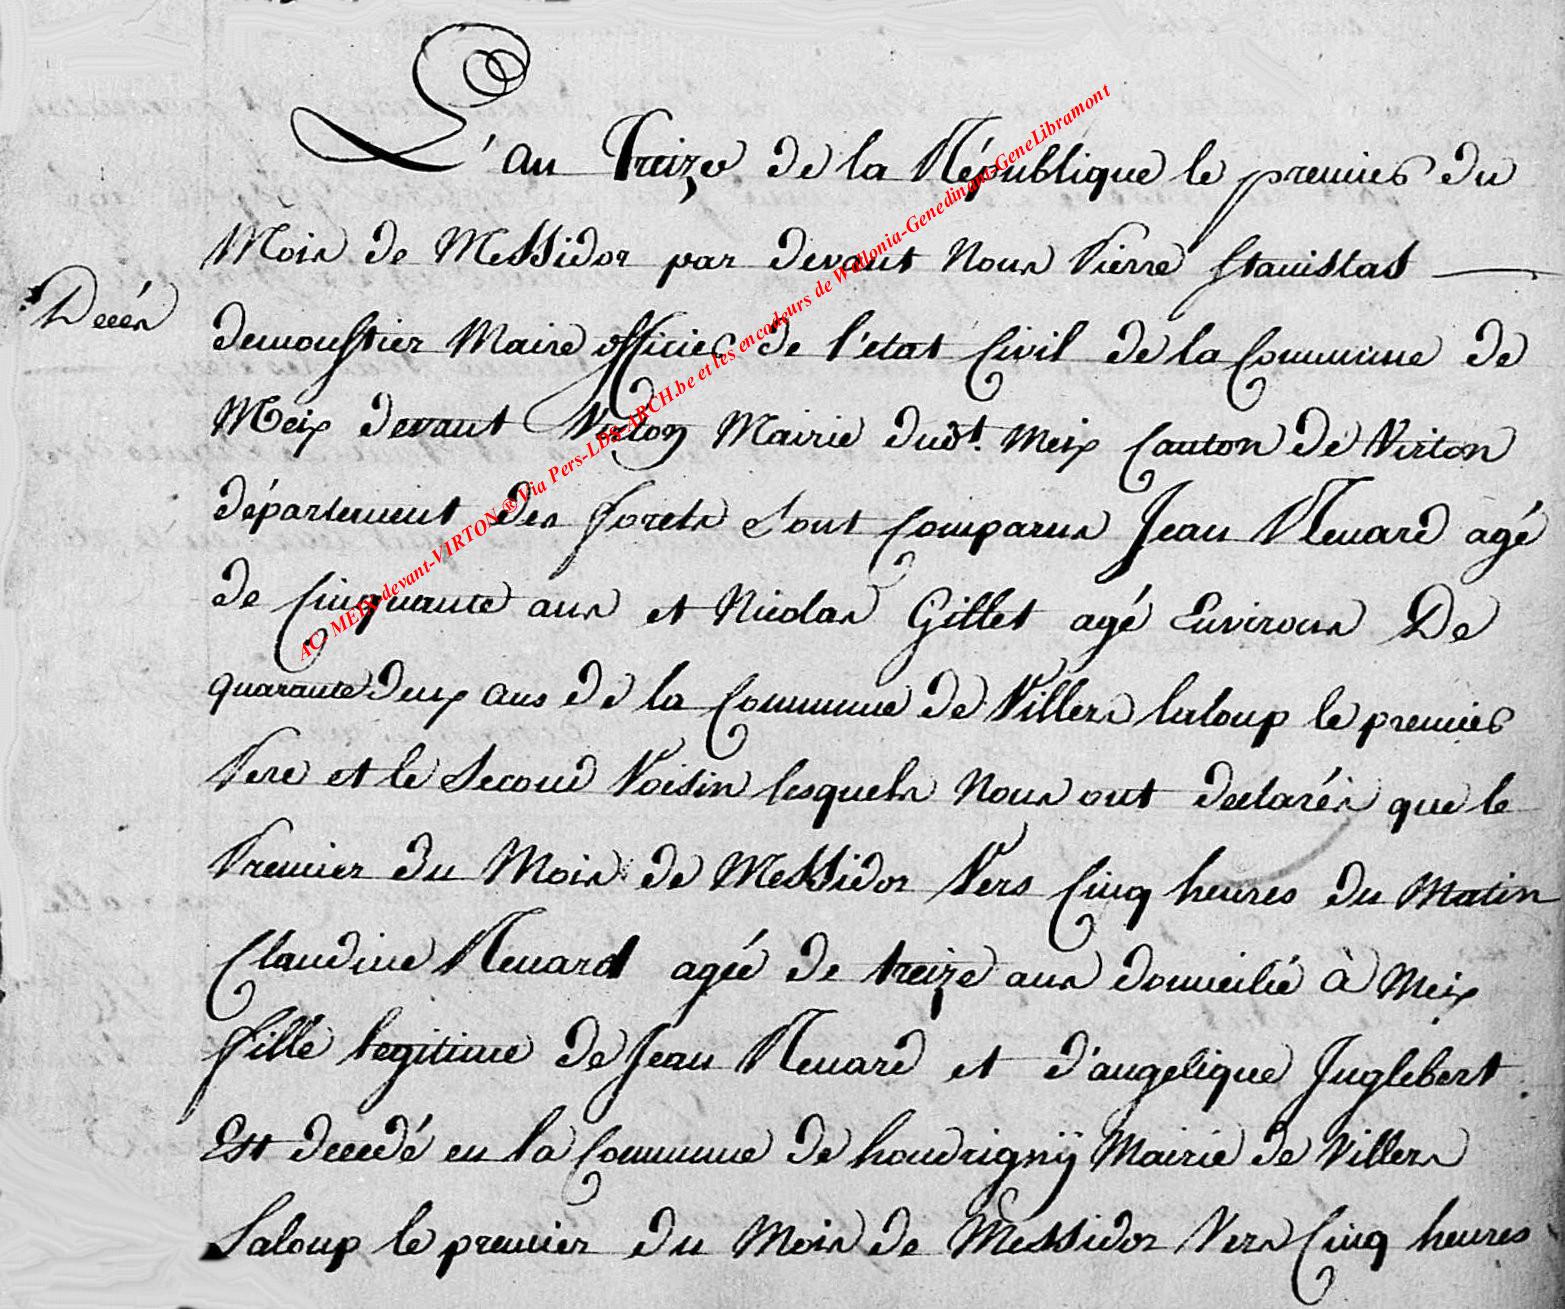 L'au Treize de la République le premier du
Mois de Messidor par devant Nous Pierre Stanislas
Décés
demoustier Maire officier de l'etat Civil de la Commune de
Meix devant Virton Mairie dudt. Meix Canton de Virton
département des forets sont Comparus Jean Renard agé
de Cinquante ans et Nicolas Gillet agé Environs De
quarante deux ans de la Commune de Villers laloup le premier
Pere et le Second Voisin lesquels Nous ont declarés que le
Premier du Mois de Messidor Vers Cinq heures du Matin
Claudine Renard agée de treize ans domicilié à Meix
fille legitime de Jean Renard et d'angelique Inglebert
Est decedé en la Commune de houdrignÿ Mairie de Villers
Laloup le premier du Mois de Messidor Vers Cinq heures
AC. MEIX-devant-VIRTON ® Via Pers-LDS-ARCH.be et les encodeurs de Wallonia-Genedinant-GeneLibramont